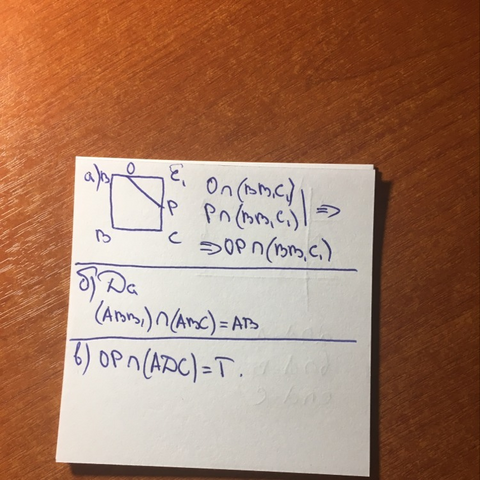 а) B O C₁
P
B C
O∩(BB₁C₁)
P∩(BB₁C₁) | ⇒
⇒ OP∩(BB₁C₁)
б) Да
(ABB₁)∩(ABC)=AB
в) OP∩(ADC)=T.